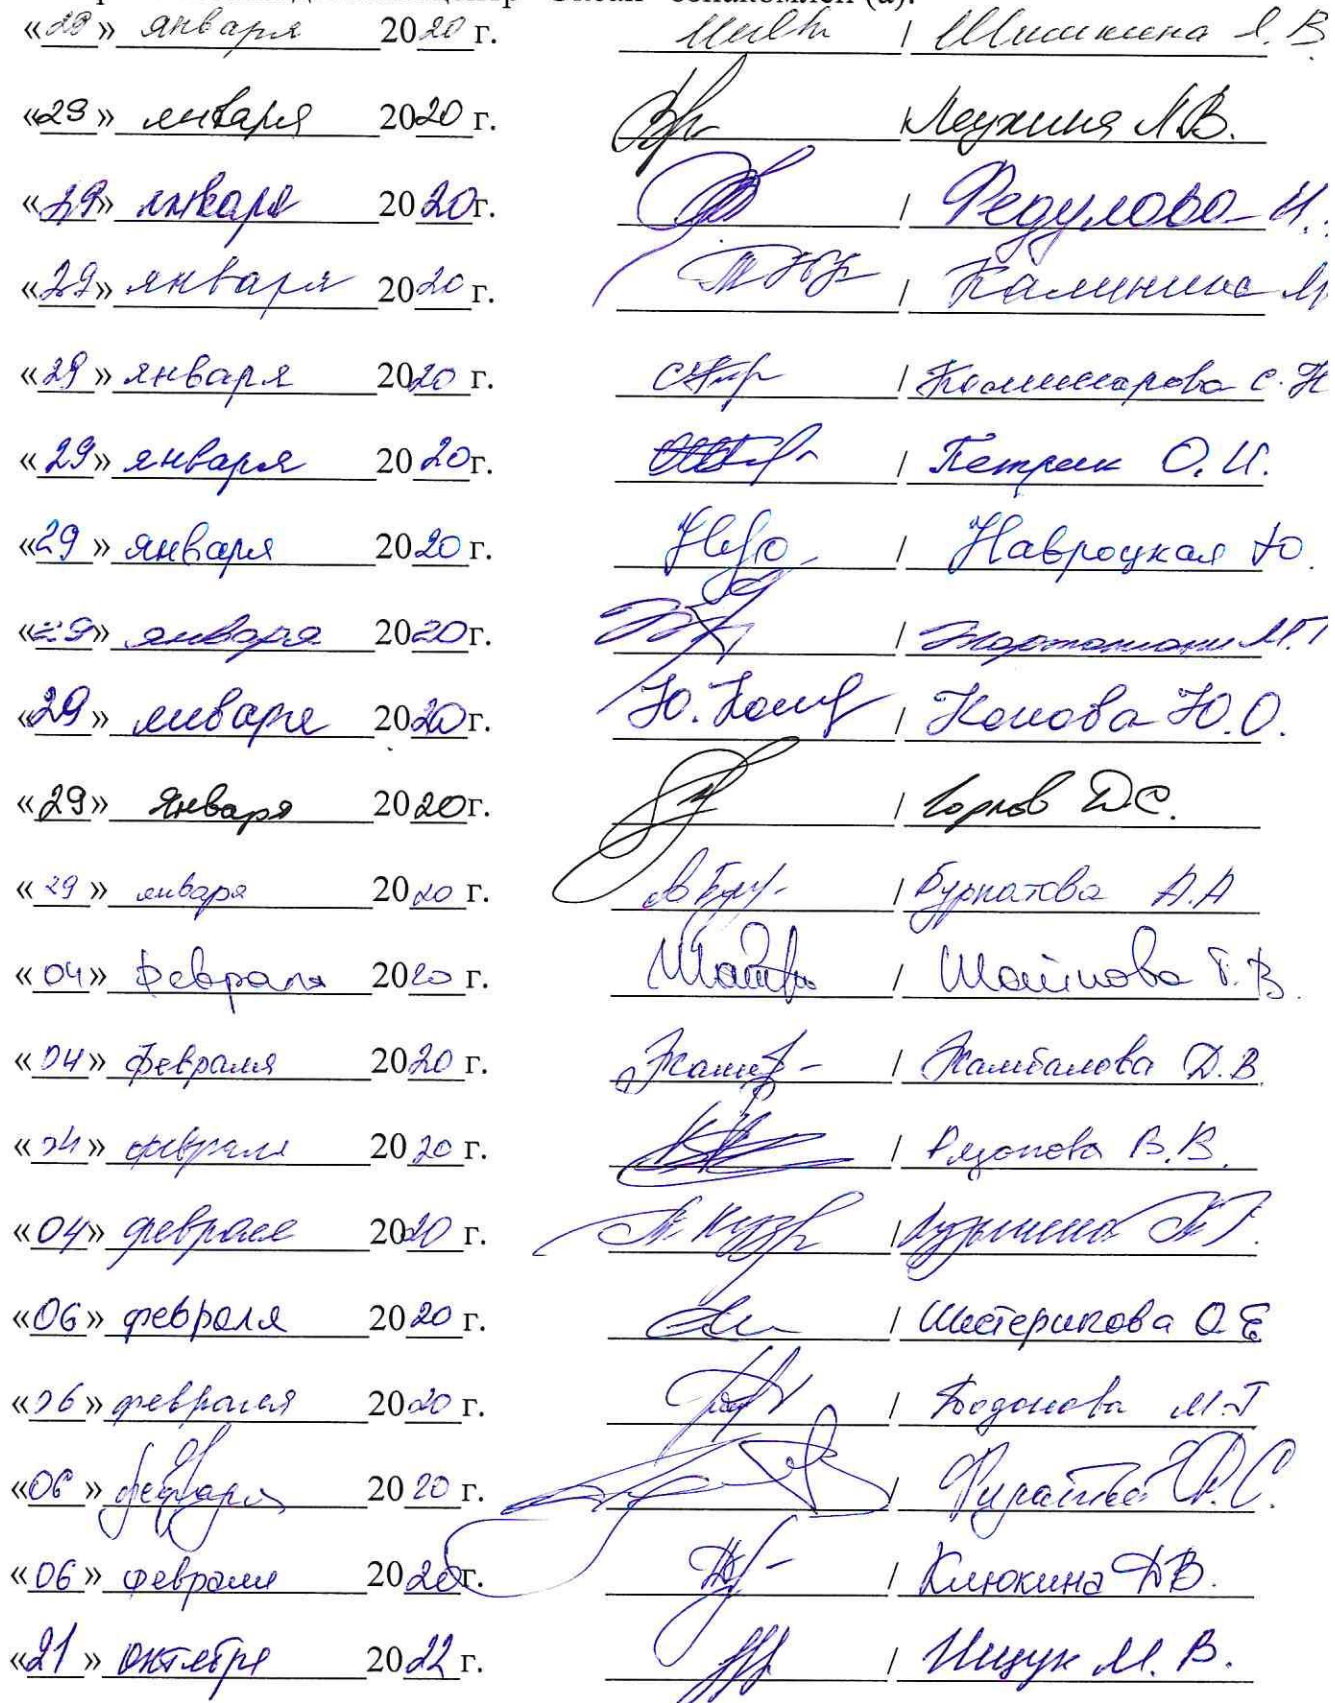 ознакомлен (а).
«29» января 2020 г. / Шишкина Л. В.
«29» января 2020 г. Леухина Л.В.
«29» января 2020г. / Федулова И.
«29» января 2020 г. / Калинина
«29» января 2020 г. / Комиссарова С. Н
«29» января 2020г. / Петрик О. И.
«29» января 2020 г. / Навроцкая Ю.
«29» января 2020г. / М.Г
«29» январе 2020г. Ю. / Конова Ю.О.
«29» Января 2020г. / Горлов Д.С.
«29» января 2020 г. / Бурнатова А.А
«04» февраля 2020 г. / Шаинова Т. В.
«04» февраля 2020 г. / Камбалова Д. В.
«04» февраля 2020 г. / В. В.
«04» феврале 2020 г. / Кузьмина
«06» февраля 2020 г. / Шестерикова О.Е
«06» февраля 2020 г. / Бодонова М.Г
«06» 2020 г. / С.
«06» февраля 2020г. / Клюкина Д В.
«21» октября 2022 г. / Ищук М. В.